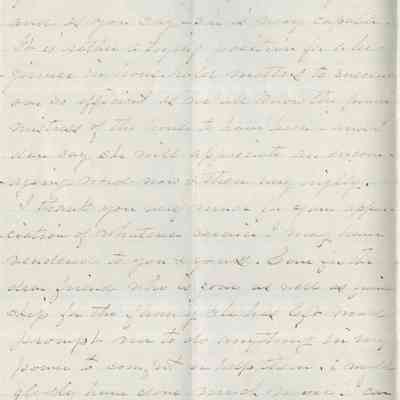 and as you say
It is rather a trying position for a be
ginner in household matters to succeed
one so efficient as we all know the former
mistress of the house to have been. I would
dare say she will appreciate an encour
aging word now & then very highly.
I thank you very much for your appre
ciation of whatever service I may have
rendered to you & yours. Love for the
dear friend who is gone as well as friend
ship for the family she has left would
prompt me to do anything in my
power to comfort or help them. I would
gladly have done much more. I can